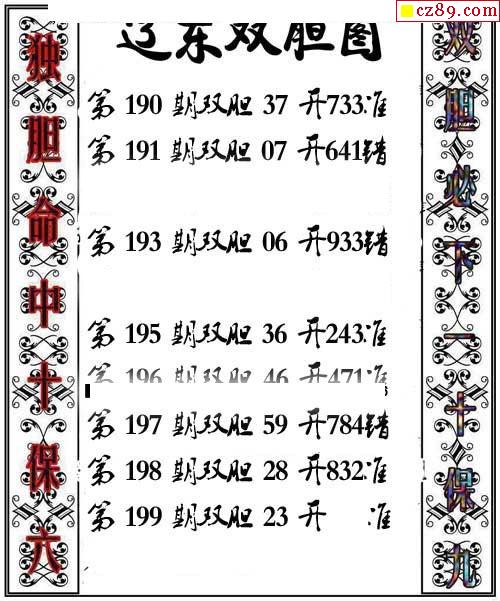 cz89.com
辽东双胆图
独胆命中十保六
第 190 期双胆 37 开733准
第 191 期双胆 07 开641错
第 193 期双胆 06 开933错
第 195 期双胆 36 开243准
第 196 期双胆 46 开471准
第 197 期双胆 59 开784错
第 198 期双胆 28 开832准
第 199 期双胆 23 开 准
双胆必下一十保九